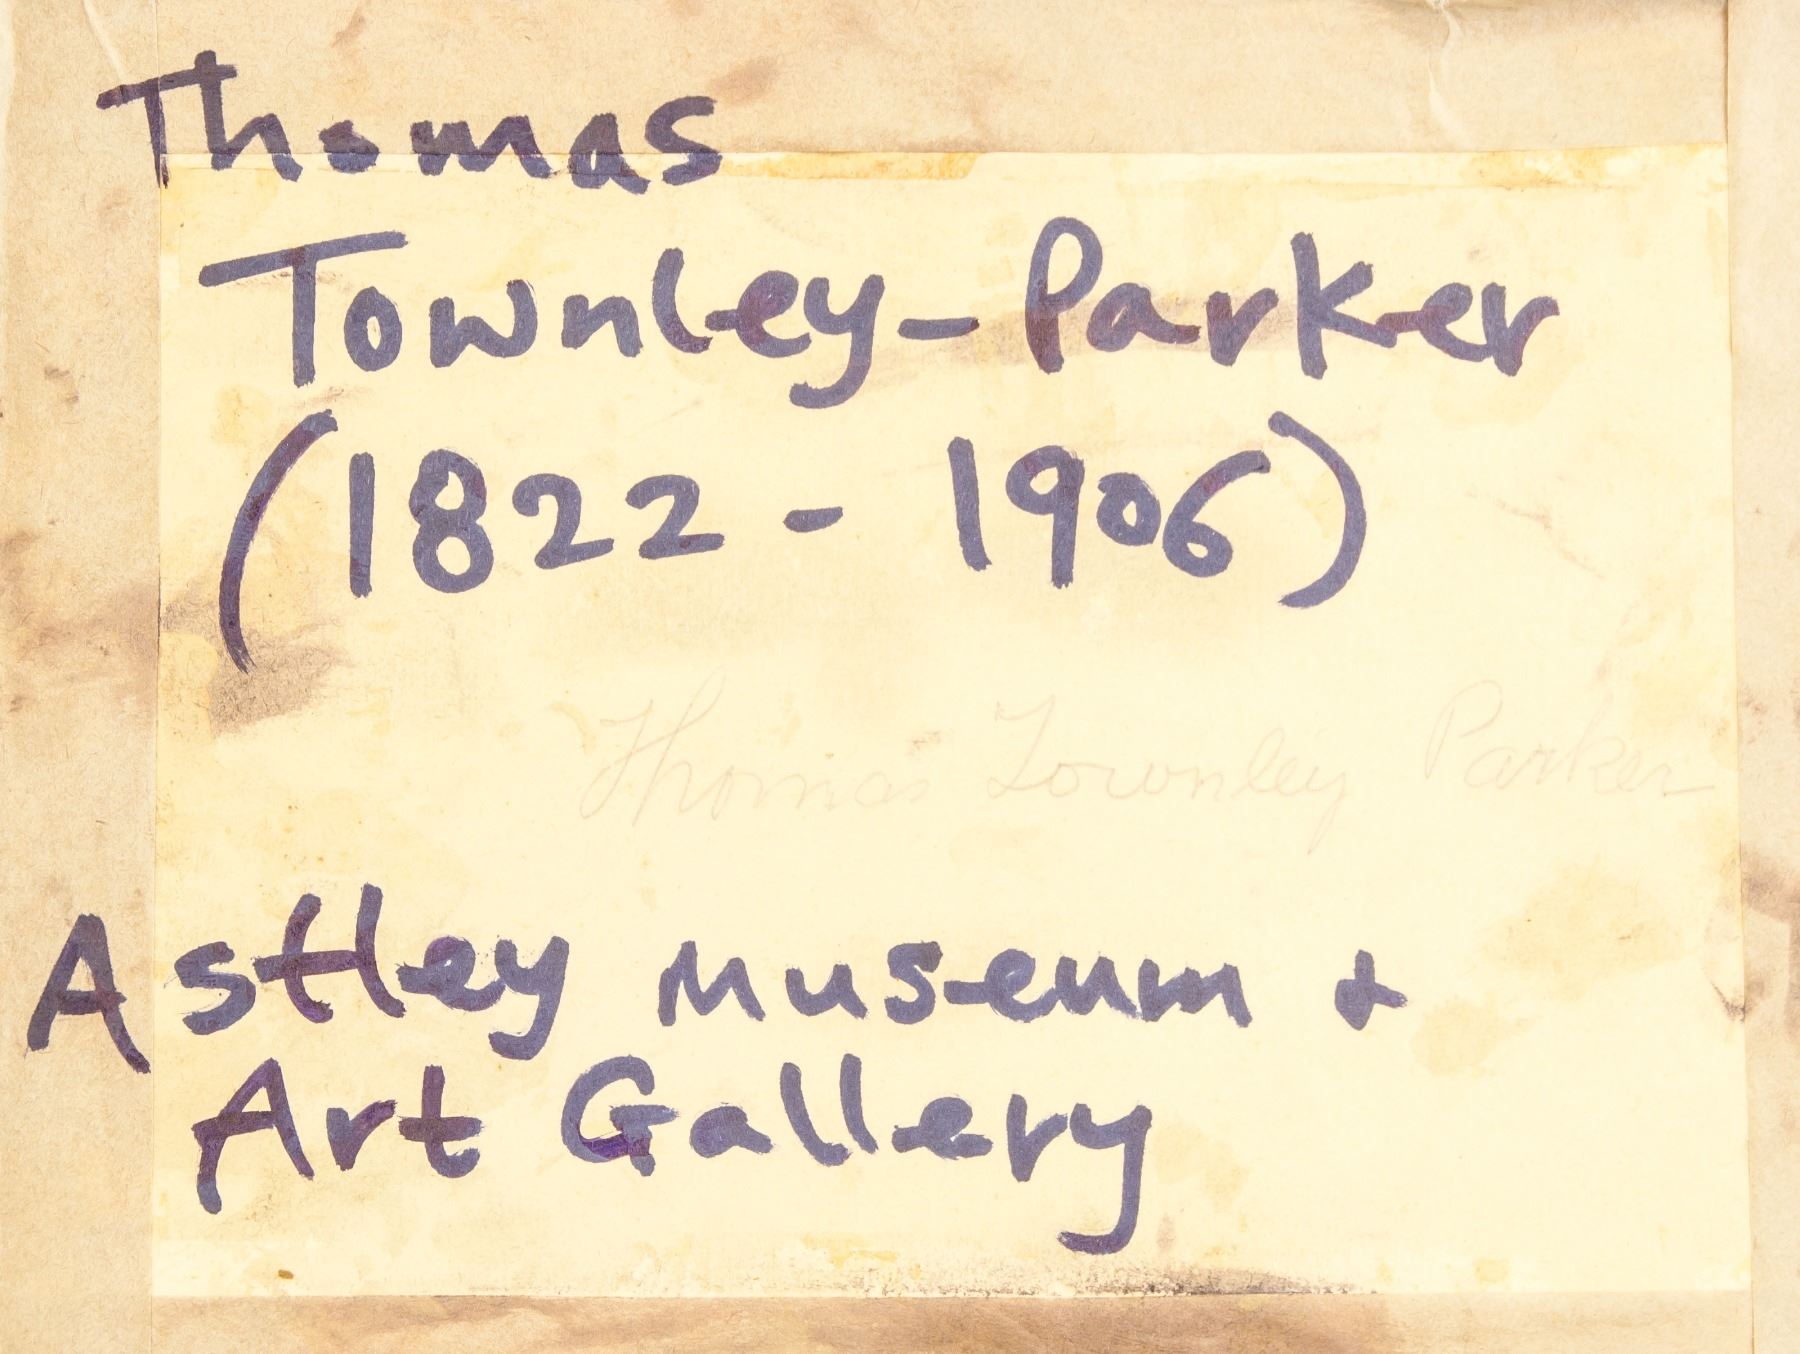 Thomas
Townley-Parker
(1822 - 1906)
Thomas Townley Parker
Astley Museum +
Art Gallery